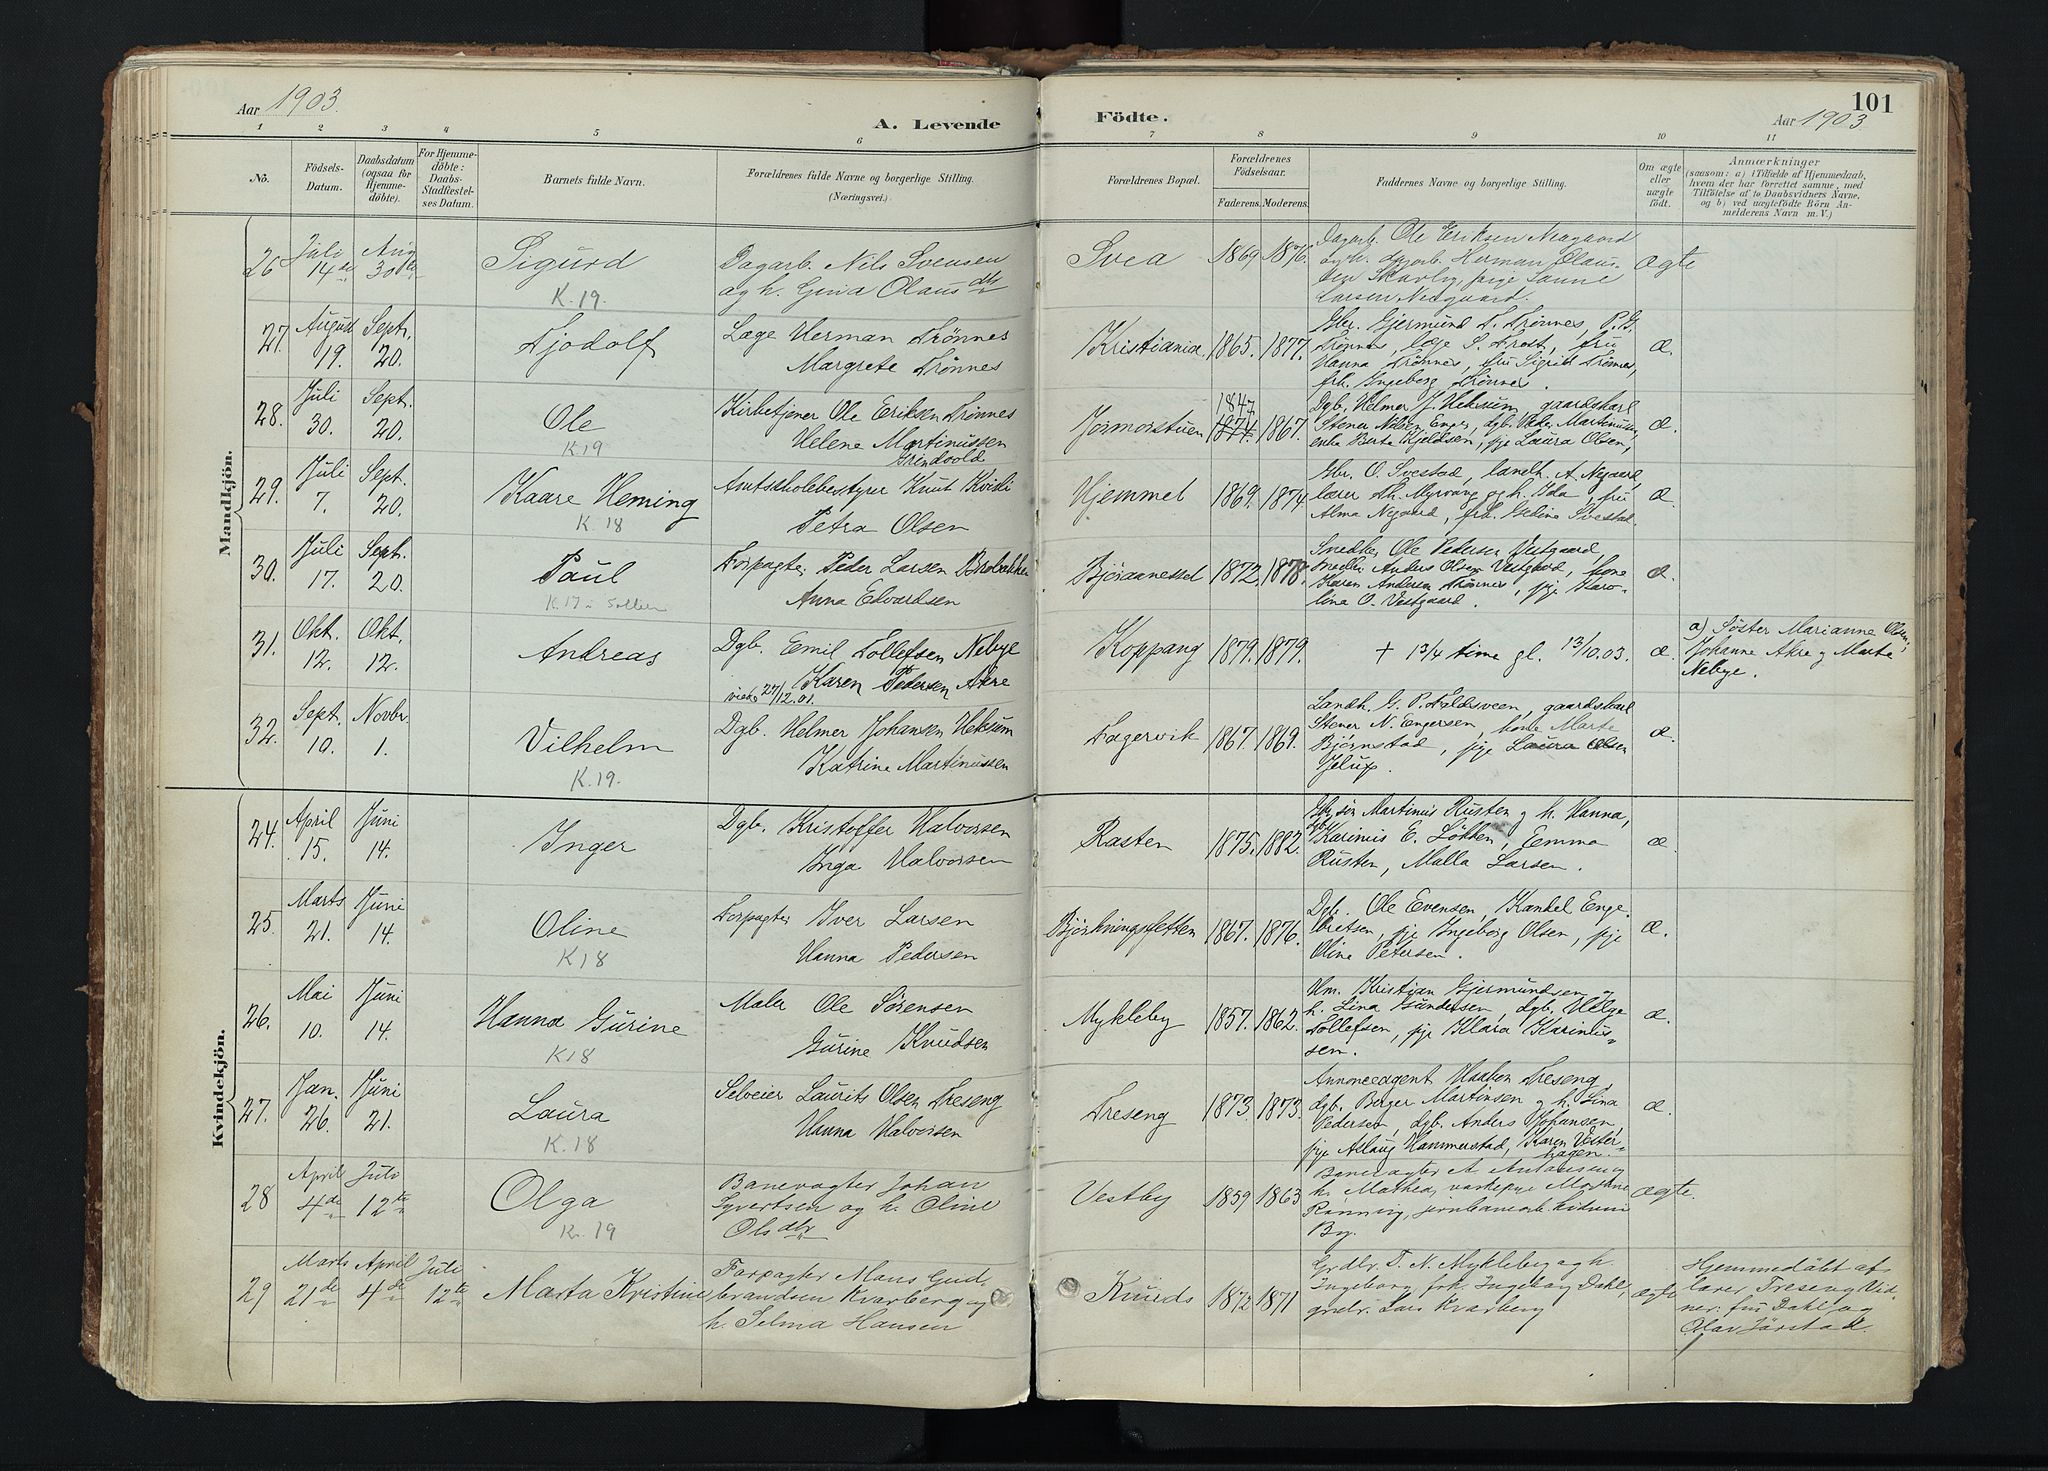 Aar 1903
A. Levende
Födte.
101
Aar 1903
1 2 3 4 5 6 7 8 9 10 11
Nö.
Födsels-Datum.
Daabsdatum (ogsaa for Hjemmedöbte).
For Hjemmedöbte: Daabs-Stadfæstelses Datum.
Barnets fulde Navn.
Forældrenes fulde Navne og borgerlige Stilling.
(Næringsvei.)
Forældrenes Bopæl.
Forældrenes Födselsaar.
Faderens. Moderens.
Faddernes Navne og borgerlige Stilling.
Om ægte eller uægte födt.
Anmærkninger
(saasom: a) i Tilfælde af Hjemmedaab,
hvem der har forrettet samme, med
Tilföielse af to Daabsvidners Navne,
og b) ved uægtefödte Börn Anmelderens Navn m. V.)
Mandkjön.
26 Juli 14de Aug 30te Sigurd K.19.
Dagarb. Nils Svensen
og h. Gina Olausdtr
Svea 1869 1876.
Dagarb. Ole Eriksen Neegaard
og h. dagarb. Herman Olausen
Skarby pige
Larsen Neegaard.
ægte
27. August 19. Sept. 20. Tjodolf
Læge Herman Trønnes
Margrete Trønnes
Kristiania 1865. 1877.
Gbr. Gjermund T. Trønnes, P. G.
Trønnes, læge S. Trost, fru
Hanna Trønnes, fru Sigrid Trønnes,
frk. Ingeborg Trønnes.
æ.
28. Juli 30. Sept. 20. Ole K19
Kirketjener Ole Eriksen Trønnes
Helene Martinussen
Grindvold
Jørmorstuen 1847. 1874. 1867.
Dgb. Helmer J. Heksum, gaardskarl
Stener Nilsen Enger, dgb. Martinus
enke Berte Kjeldsen, pje Laura Olsen,
æ.
29. Juli 7. Sept. 20. Kaare Heming K 18
Amtsskolebestyrer Knut Kviki
Petra Olsen
Hjemmel 1869. 1874
Gbr. O. Svestad, landh. A. Negaard,
lærer Th. Myrvang og h. Ida, fru
Alma Negaard, frk. Svestad.
æ
30. Juli 17. Sept. 20. Paul K.17 i Sollien
Forpagter Peder Larsen Brobakken
Anna Edvardsen
Bjøraanesset 1872. 1878.
Snedker Ole Pedersen Vestgaard,
Anders Olsen Vestgaard, kone
Karen Andersen Trønnes, pje Karoline
O. Vestgaard.
æ.
31. Okt. 12. Okt. 12. Andreas
Dgb. Emil Tollefsen Nebye
Karen Pedersen Akre
viede 27/12.01.
Koppang 1879. 1879.
+ 1 3/4 time gl. 13/10.03.
æ.
a) Søster Marianne Olsen,
Johanne Akre og Marte
Nebye.
32. Sept. 10. Novbr. 1. Vilhelm K.19.
Dgb. Helmer Johansen Heksum
Katrine Martinussen
Fagervik 1867. 1869.
Landh. G. P. Foldsveen, gaardskarl
Stener N. Engersen, kone Marte
Bjørnstad, pje Laura Olsen
Jelup.
æ.
Kvindekjön.
24. April 15. Juni 14. Inger
Dgb. Kristoffer Halvorsen
Inga Halvorsen
Rasten 1875. 1882.
Gbr.søn Martinus Rusten og h. Hanna,
Karinus E. Løkken, Emma
Rusten, Malla Larsen.
æ
25. Marts 21. Juni 14. Oline K18
Forpagter Iver Larsen
Hanna Pedersen
Bjørkningsfletten 1867. 1876.
Dgb. Ole Evensen, Kandel Engebretsen,
pje Ingeborg Olsen, pje
Oline Petersen.
æ.
26. Mai 10. Juni 14. Hanna Gurine K18
Maler Ole Sørensen
Gurine Knudsen
Mykleby 1857. 1862.
Um. Kristian Gjermundsen og
h. Lina Gundersen, dgb. Helge
Tollefsen, pje Klara Karinussen.
æ.
27. Jan. 26. Juni 21. Laura K.18
Selveier Laurits Olsen Treseng
Hanna Halvorsen
Treseng 1873. 1873.
Annonceagent Haaken Treseng,
dgb. Birger Martinsen og h. Lina
Pedersen, dgb. Anders Johansen,
pje Aslaug Hammerstad, Karen Vesterhagen.
æ.
28 April 4de Juli 12te Olga K. 19
Banevogter Johan
Syvertsen og h. Oline
Olsdtr
Vestby 1859 1863
Banevogter A. Antonsen og
h. Mathea,
Rønnvig, jernbanearb.
By.
ægte.
29 Marts 21de April 4de Juli 12te Marta Kristine
Forpagter Mons Gudbrandsen
Kvarberg og
h. Selma Hansen
Knuds 1872 1871
Grdbr. T. N. Mykleby og h.
Ingeborg, frk. Ingeborg Dahl,
grdbr. Lars Kvarberg
ægte
Hjemmedøbt af
lærer Treseng Vidner:
fru Dahl og
Olav Jørstad.